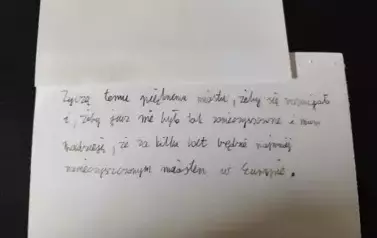 Życzę temu pięknemu miastu, żeby się rozwijało
i, żeby już nie było tak zanieczyszczone i mam
nadzieję, że za kilka lat będzie najmniej
zanieczyszczonym miastem w Europie.